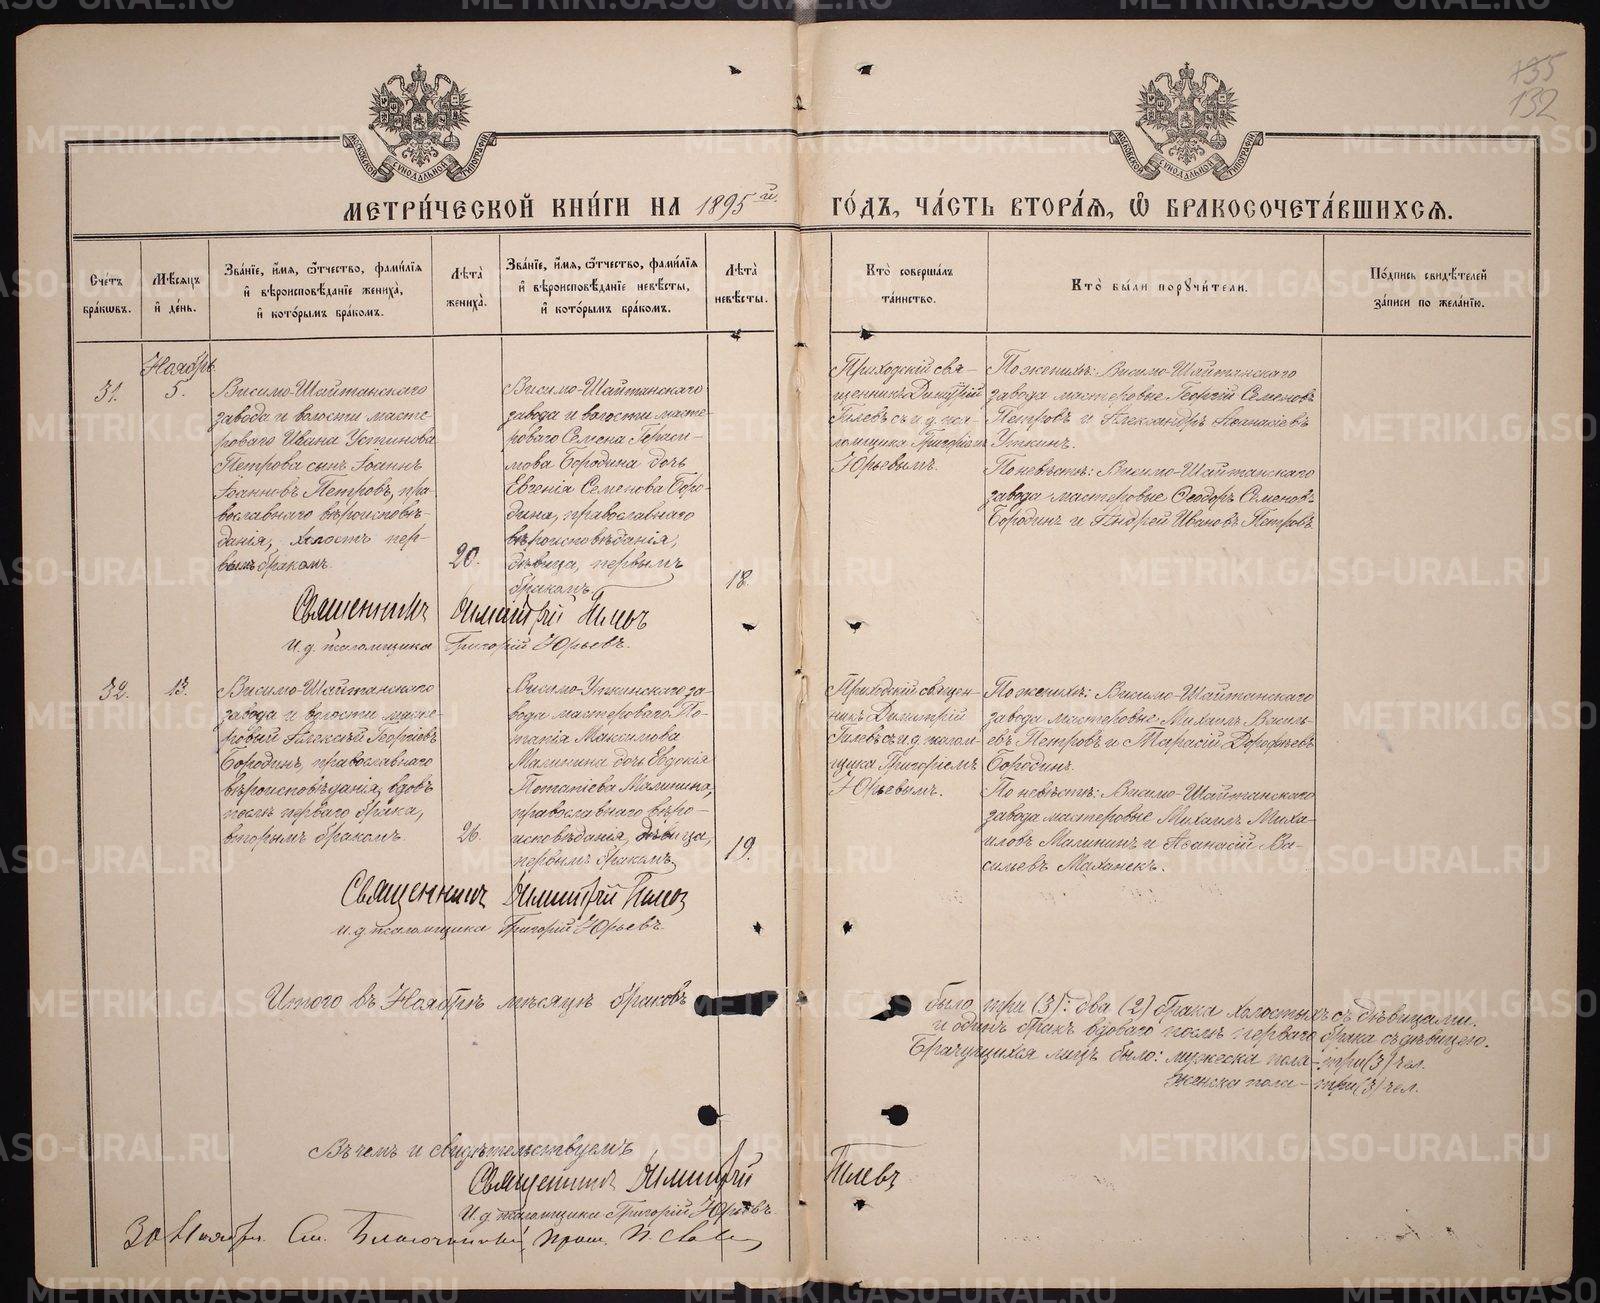 135
132
МОСКОВСКОЙ СѴНОДАЛЬНОЙ ТИПОГРАФІИ
МОСКОВСКОЙ СѴНОДАЛЬНОЙ ТИПОГРАФІИ
МЕТРИ́ЧЕСКОЙ КНИ́ГИ НА 1895й.
ГО́ДЪ, ЧА́СТЬ ВТОРА́Я, Ѽ БРАКОСОЧЕТА́ВШИХСЯ.
Сче́тъ бра́кѡвъ.
Мѣ́сяцъ и҆ де́нь.
Зва́нїе, и҆́мя, ѻ҆́тчество, фами́лїя и҆ вѣроисповѣ́данїе жениха̀, и҆ кото́рымъ бра́комъ.
Лѣта̀ жениха̀.
Зва́нїе, и҆́мя, ѻ҆́тчество, фами́лїя и҆ вѣроисповѣ́данїе невѣ́сты, и҆ кото́рымъ бра́комъ.
Лѣта̀ невѣ́сты.
Кто̀ соверша́лъ та́инство.
Кто̀ бы́ли порꙋчи́тели.
По́дпись свидѣ́телей за́писи по жела́нїю.
31.
Ноябрь
5.
Висимо-Шайтанскаго
завода и волости масте-
роваго Ивана Устинова
Петрова сынъ Іоаннъ
Іоанновъ Петровъ, пра-
вославнаго вѣроисповѣ-
данія, холостъ пер-
вымъ бракомъ.
20.
Висимо-Шайтанскаго
завода и волости масте-
роваго Семена Гераси-
мова Бородина дочь
Евгенія Семенова Боро-
дина, православнаго
вѣроисповѣданія,
дѣвица, первымъ
бракомъ
18.
Приходскій свя-
щенникъ Димитрій
Гилевъ съ и. д. пса-
ломщика Григоріемъ
Юрьевымъ.
По женихѣ: Висимо-Шайтанскаго
завода мастеровые Георгій Семеновъ
Петровъ и Александръ Аѳанасіевъ
Уткинъ.
По невѣстѣ: Висимо-Шайтанскаго
завода мастеровые Ѳеодоръ Семеновъ
Бородинъ и Андрей Ивановъ Петровъ
Священникъ Димитрій Гилевъ
И. д. псаломщика Григорій Юрьевъ.
32.
13.
Висимо-Шайтанскаго
завода и волости масте-
ровый Алексѣй Георгіевъ
Бородинъ, православнаго
вѣроисповѣданія, вдовъ
послѣ перваго брака,
вторымъ бракомъ
26.
Висимо-Уткинскаго за-
вода мастероваго По-
тапія Максимова
Малинина дочь Евдокія
Потапіева Малинина,
православнаго вѣро-
исповѣданія, дѣвица,
первымъ бракомъ
19.
Приходскій священ-
никъ Димитрій
Гилевъ съ и. д. псалом-
щика Григоріемъ
Юрьевымъ.
По женихѣ: Висимо-Шайтанскаго
завода мастеровые Михаилъ Василь-
евъ Петровъ и Тарасій Дороѳеевъ
Бородинъ.
По невѣстѣ: Висимо-Шайтанскаго
завода мастеровые Михаилъ Миха-
иловъ Малининъ и Аѳанасій Ва-
сильевъ Маханекъ.
Священникъ Димитрій Гилевъ
И. д. псаломщика Григорій Юрьевъ.
Итого въ Ноябрѣ мѣсяцѣ браковъ
было три (3): два (2) брака холостыхъ съ дѣвицами.
и одинъ бракъ вдоваго послѣ перваго брака съ дѣвицею.
Брачущихся лицъ было: мужеска пола - три (3) чел.
женска пола - три (3) чел.
Въ чемъ и свидѣтельствуемъ
Священникъ Димитрій Гилевъ
И. д. псаломщика Григорій Юрьевъ.
30 Ноября. См. Благочинный, прот.